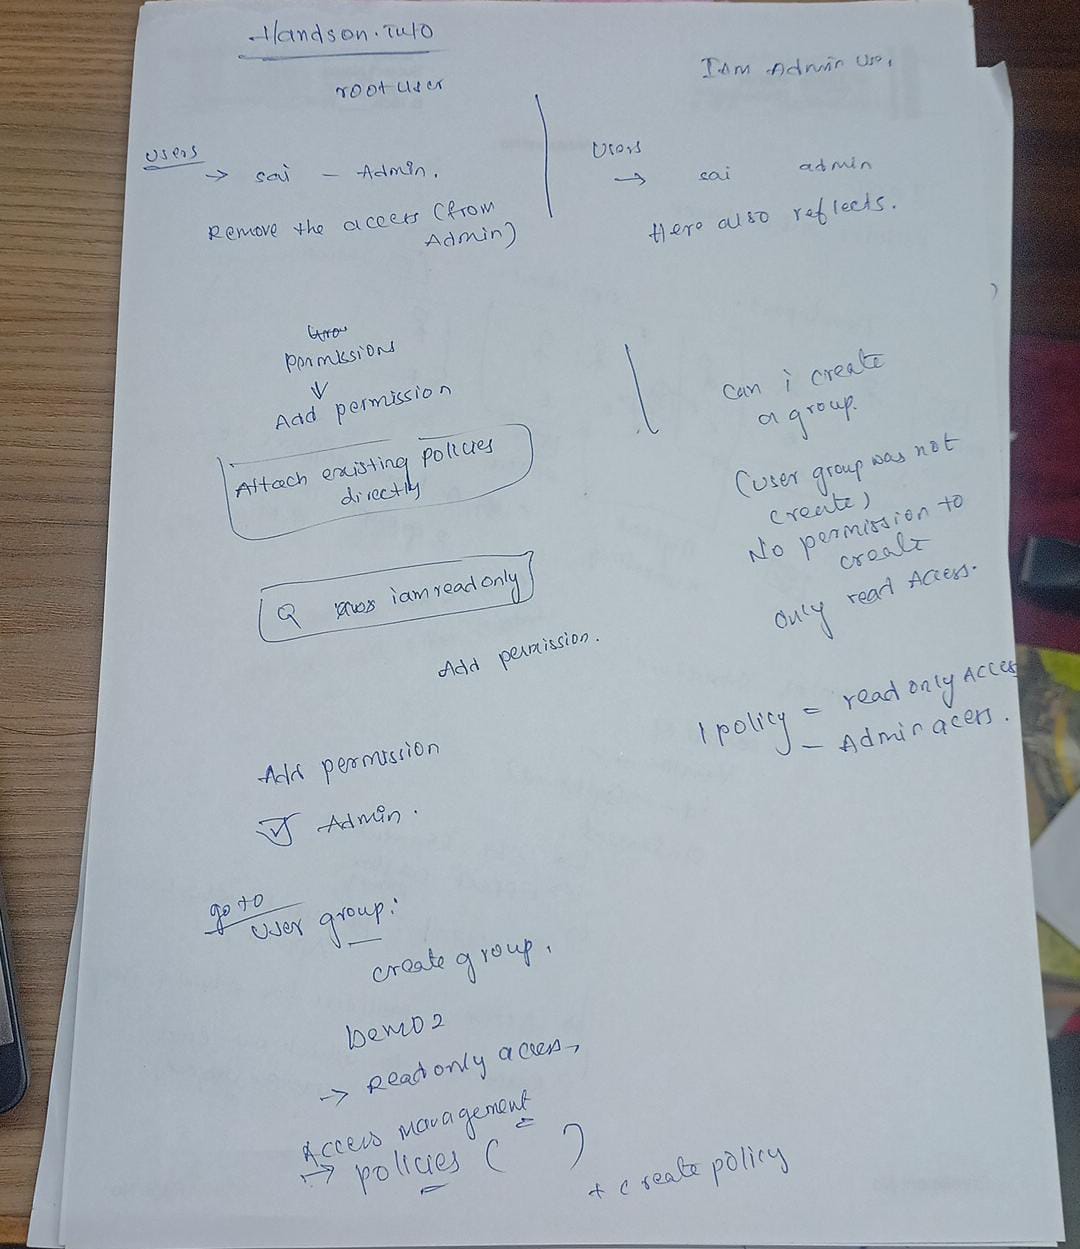 Handson. Tuto
root user
IAM Admin Use,
users
→ sai - Admin.
Remove the access (from
Admin)
Users
→ sai admin
Here also reflects.
Permissions
↓
Add permission
Attach existing policies
directly
Q iam read only
Add permission.
can i create
a group.
(user group was not
create)
No permission to
create
only read Access.
1 policy = read only Acces
- Admin acers.
Add permission
☑ Admin.
go to
User group:
create group.
Demo 2
→ Read only access,
Access Management
→ policies ( )
+ create policy